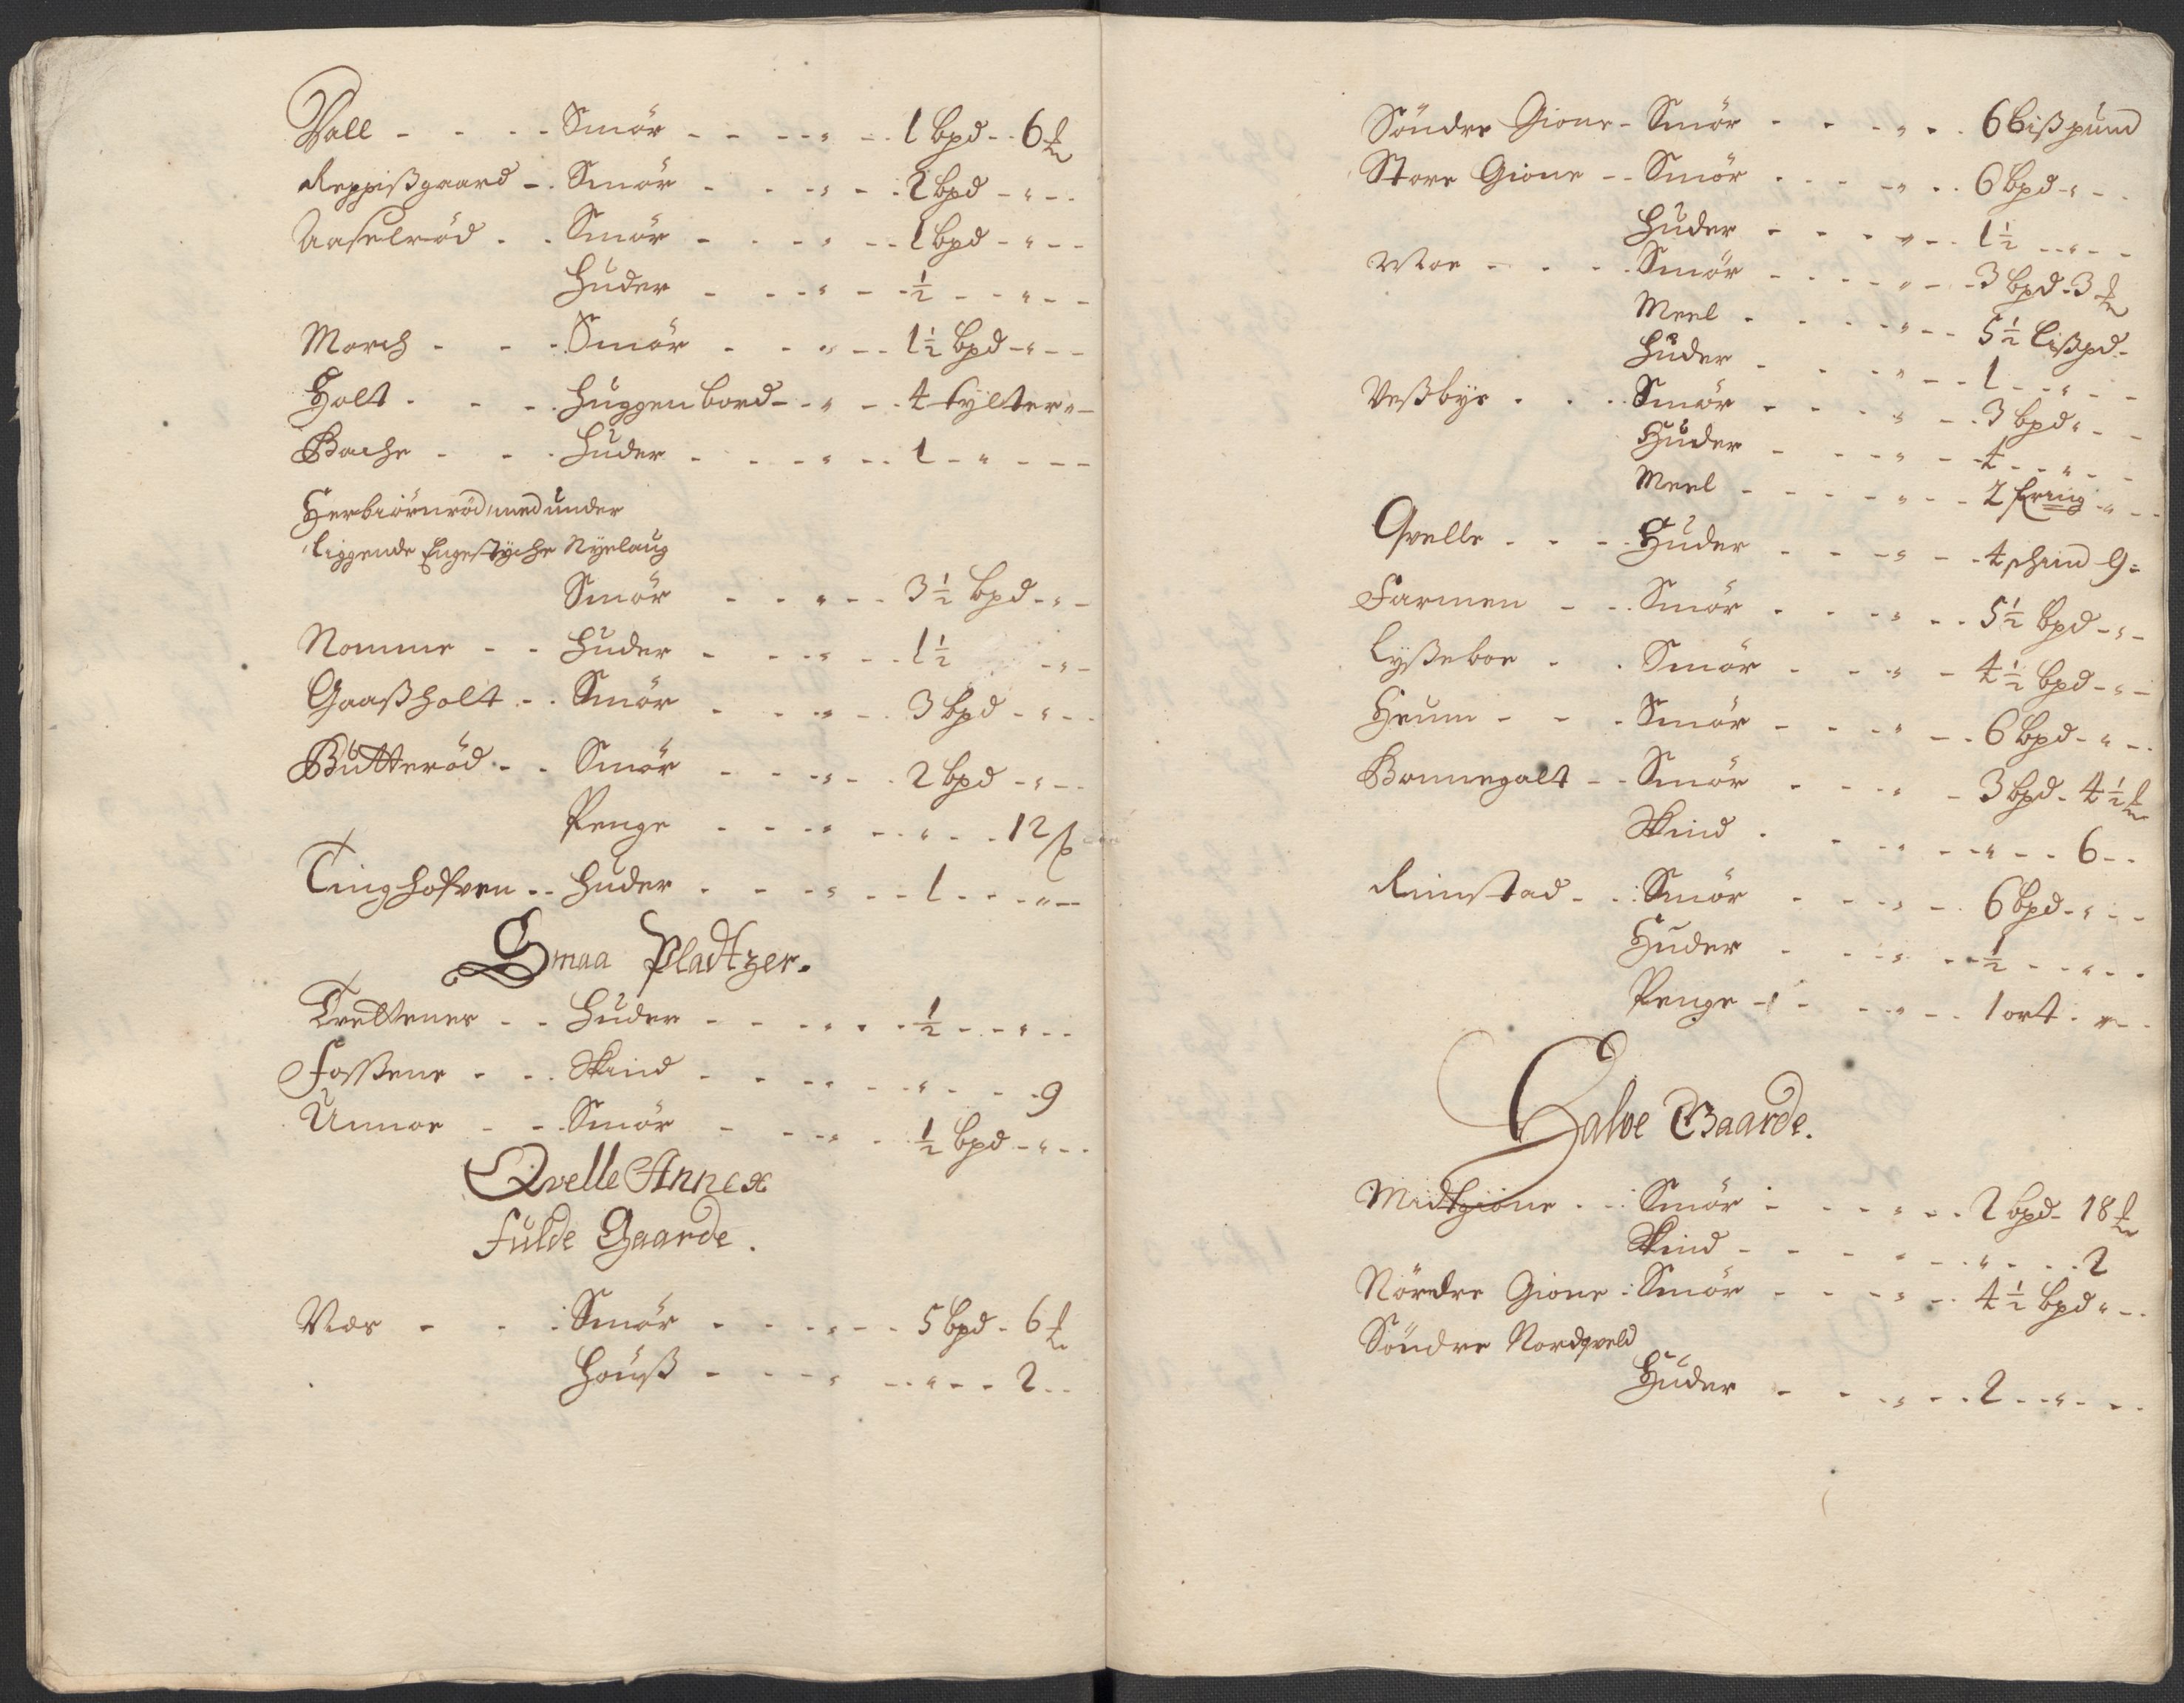 Vall - - - - Smör - - - - " - - 1 bpd - - 6 ℔
Reppißgaard - . Smör - - - " - - 2 bpd - " - -
Aaselröd - - Smör - - - - " - - 1 bpd - " - -
Huder - - - " - - ½ - - " - -
March - - - Smör - - - " - - 1½ bpd - " - -
Holt - - - Huggenbord - - " - - 4 tylter " -
Bache - - - Huder - - - " - - 1 - " - - -
Herbiörnröd med under
liggende Engestyche Nyelaug
Smör - - " - - 3½ bpd - " -
Nomme - - Huder - - - " - - 1½ - " -
Gaaßholt - - Smör - - - " - - 3 bpd - " - -
Butteröd - - Smör - - - " - - 2 bpd - " - -
Penge - - - " - - " - - 12 ß
Tinghofven - - Huder - - - " - - 1 - - - " -
Smaa Pladtzer.
Trettenes - - Huder - - - " - - ½ - - " - -
Foßene - - - Skind - - - - " - - " - - - 9
Unnoe - - - Smör - - - " - ½ bpd - " - -
Qvelle Annex
Fulde Gaarde.
Vies - - - Smör - - - - " - - 5 bpd - 6 ℔
Höuß - - - " - - " - - 2 - -
Söndre Gione - Smör - - - " - - 6 bißpund
Store Gione - - Smör - - - - " - - 6 bpd - " - -
Huder - - - " - - 1½ - - " - -
Moe - - - Smör - - - - " - - 3 bpd - 3 ℔
Meel - - - - " - - 5½ lißpd -
Huder - - - " - - 1 - - " - -
Veßbye - - - Smör - - - - " - - 3 bpd " - -
Huder - - - " - - 4 - - " - -
Meel - - - - " - - 2 fering " - -
Qvelle - - - Huder - - - " - - 4 schind 9 -
Farmen - - Smör - - - " - - 5½ bpd - " -
Lyßeboe - - Smör - - - " - 4½ bpd - " -
Heum - - - Smör - - - " - - 6 bpd - " - -
Bonnegalt - - Smör - - - " - 3 bpd - 4½ ℔
Skind - - - " - - " - - 6 - -
Rimstad - - Smör - - - " - - 6 bpd - " - -
Huder - - - " - - ½ - - " - -
Penge - - - - " - - 1 ort - " - -
Halve Gaarde.
Midtgione - - Smör - - - - " - - 2 bpd - 18 ℔
Skind - - - - " - - " - - - 2
Nördre Gione - Smör - - - " - - 4½ bpd " - -
Söndre Nordqveld
Huder - - - " - - 2 - - " - - -